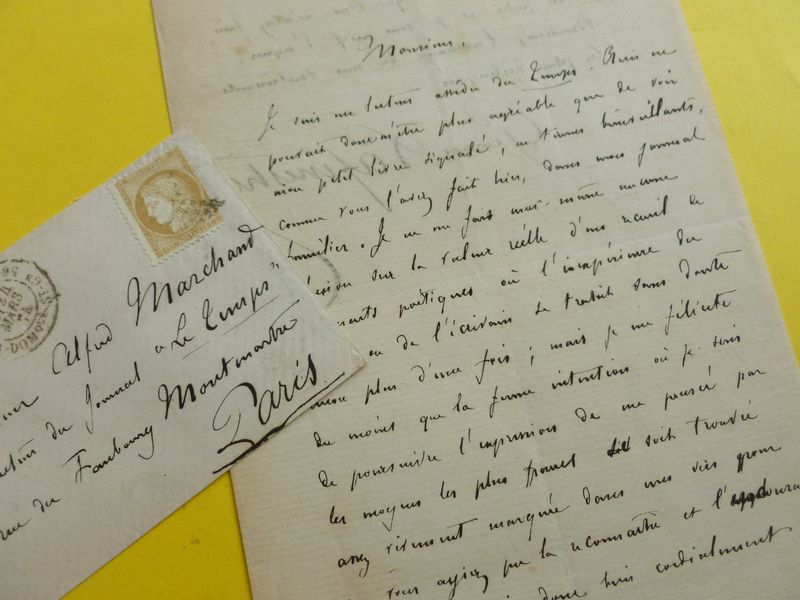 Monsieur,
Je suis un lecteur assidu du Temps. Rien ne
pouvait donc m'être plus agréable que de voir
mon petit livre signalé, en termes bienveillants,
comme vous l'avez fait hier, dans mon journal
familier. Je ne me fais moi-même aucune
sur la valeur réelle d'un recueil de
poétiques où l'inexpérience du
ou de l'écrivain se trahit sans doute
plus d'une fois ; mais je me félicite
du moins que la ferme intention où je suis
de poursuivre l'expression de ma pensée par
les moyens les plus francs soit trouvée
assez vivement marquée dans mes vers pour
vous ayiez pu la reconnaître et l'
donc bien cordialement
Alfred Marchand
du Journal "Le Temps"
rue du Faubourg Montmartre
Paris
MARS